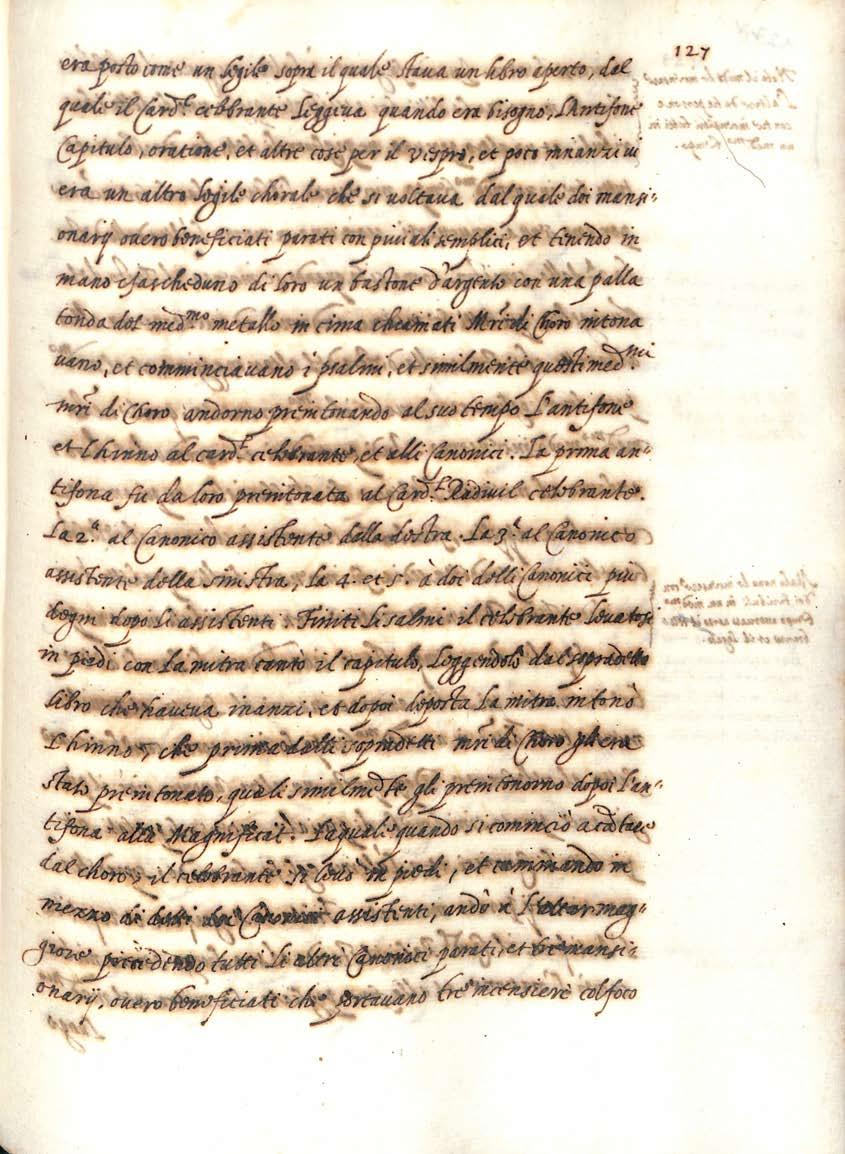 127
era posto come un legile sopra il quale stava un libro aperto, dal
quale il Card.le celebrante leggeva quando era bisogno, l'Antifone
Capitulo, oratione, et altre cose per il vespro, et poco innanzi vi
era un altro legile chorale che si voltava dal quale doi mansi=
onarij overo beneficiati parati con piviali semplici, et tenendo in
mano ciascheduno di loro un bastone d'argento con una palla
tonda del med.mo metallo in cima chiamati Mri di Choro intona
vano, et comminciavano i psalmi, et similmente questi med.mi
mri di Choro andorno preintonando al suo tempo l'antifone
et l'hinno al card.le celebrante, et alli Canonici. La prima an=
tifona fu da loro preintonata al Card.le Radivil celebrante.
La 2.a al Canonico assistente dalla destra. La 3.a al Canonico
assistente della sinistra, la 4. et 5. à doi delli Canonici più
degni dopo li assistenti. Finiti li salmi il celebrante levatosi
in piedi con la mitra cantò il capitulo, leggendolo dal sopradetto
libro che haveva inanzi, et dopoi deposta la mitra intonò
l'hinno, che prima dalli sopradetti mri di Choro gli era
stato preintonato, quali similmente gli preintonorno dopoi l'an=
tifona alla Magnificat. La quale quando si cominciò a cantare
dal choro, il celebrante si levò in piedi, et camminando in
mezzo de detti doi Canonici assistenti, andò à l'altar mag=
giore precedendo tutti li altri Canonici parati, et tre mansi=
onarij, overo beneficiati che portavano tre incensieri col foco